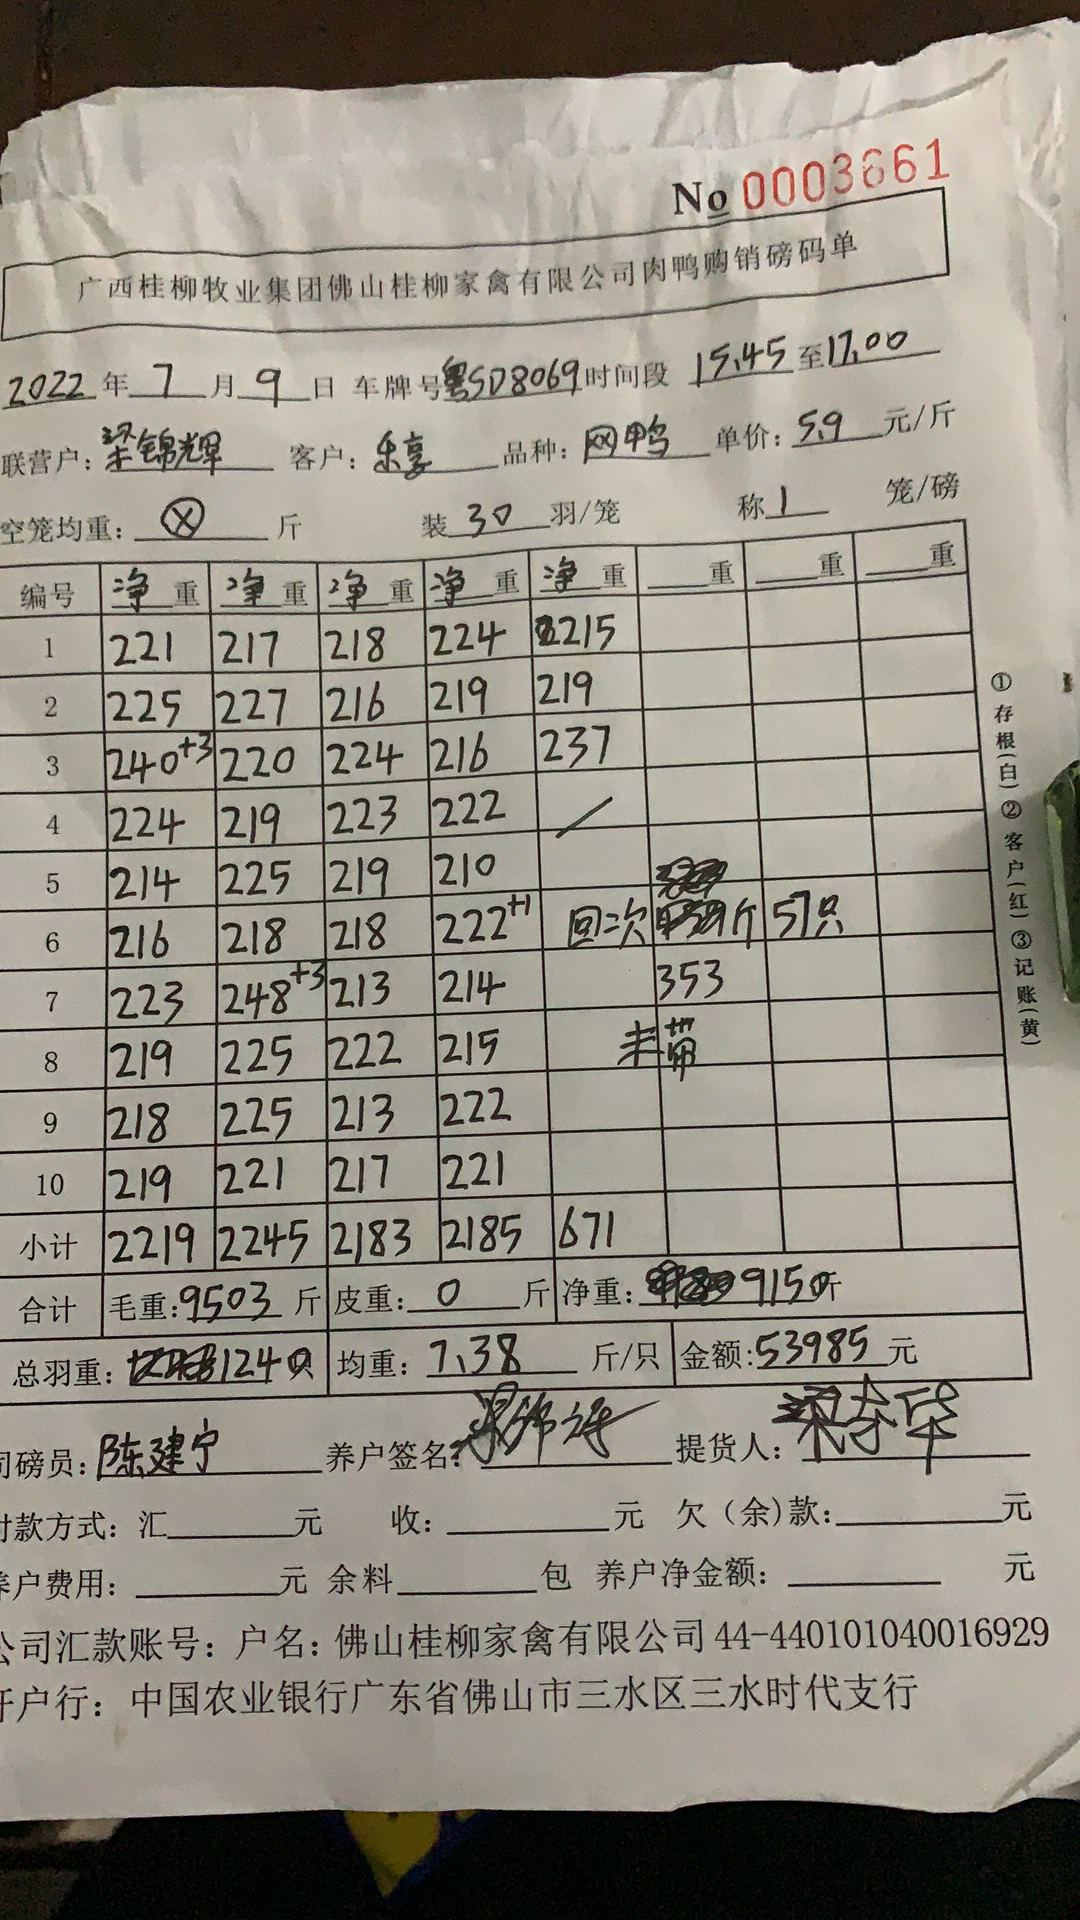 No 0003661
广西桂柳牧业集团佛山桂柳家禽有限公司肉鸭购销磅码单
2022 年 7 月 9 日 车牌号 粤SD8069 时间段 15.45 至 17.00
联营户: 梁锦辉 客户: 乐享 品种: 网鸭 单价: 5.9 元/斤
空笼均重: ⓧ 斤 装 30 羽/笼 称 1 笼/磅
编号 净重 净重 净重 净重 净重 重 重 重
1 221 217 218 224 215
2 225 227 216 219 219
3 240+3 220 224 216 237
4 224 219 223 222 /
5 214 225 219 210
6 216 218 218 222+1 回次 斤 57只
7 223 248+3 213 214 353
8 219 225 222 215 未带
9 218 225 213 222
10 219 221 217 221
小计 2219 2245 2183 2185 671
合计 毛重: 9503 斤 皮重: 0 斤 净重: 9150 斤
总羽重: 1240只 均重: 7.38 斤/只 金额: 53985 元
司磅员: 陈建宁 养户签名: 提货人:
付款方式: 汇 元 收: 元 欠(余)款: 元
养户费用: 元 余料 包 养户净金额: 元
公司汇款账号: 户名: 佛山桂柳家禽有限公司 44-440101040016929
开户行: 中国农业银行广东省佛山市三水区三水时代支行
①存根(白)②客户(红)③记账(黄)